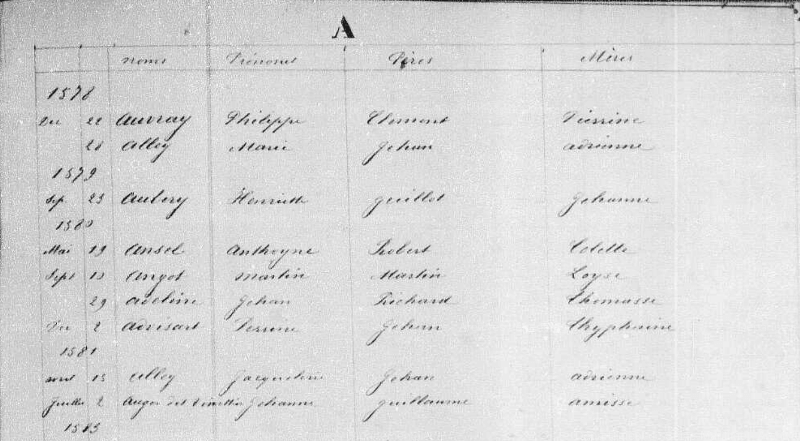 A
noms Prénoms Pères Mères
1578
Dec 22 auvray Philippe Clement Pierrine
28 alley Marie Jehan adrienne
1579
Sep. 23 aubery Henriette guillot Jehanne
1580
Mai 19 ansel anthoyne Robert Colette
Sept 12 angot martin Martin Loyse
29 aveline Jehan Richard Thomasse
Dec 2 Perrine Jehan Thyphaine
1581
avril 15 alley Jacqueline Jehan adrienne
Juillet 2 auger dit Jehanne guillaume amisse
1583